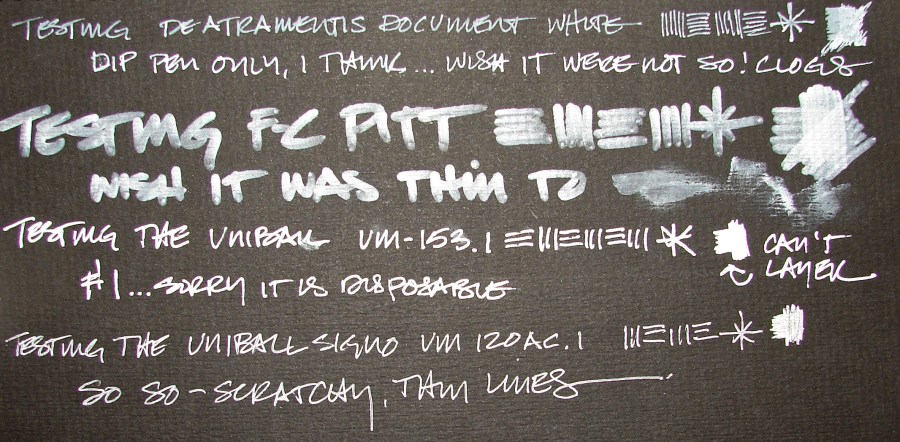 TESTING DE ATRAMENTIS DOCUMENT WHITE
DIP PEN ONLY, I THINK... WISH IT WERE NOT SO! CLOGS
TESTING F-C PITT
WISH IT WAS THIN TO
TESTING THE UNIBALL UM-153.1
CAN'T LAYER
#1...SORRY IT IS DISPOSABLE
TESTING THE UNIBALL SIGNO UM 120AC.1
SO SO - SCRATCHY, THIN LINES